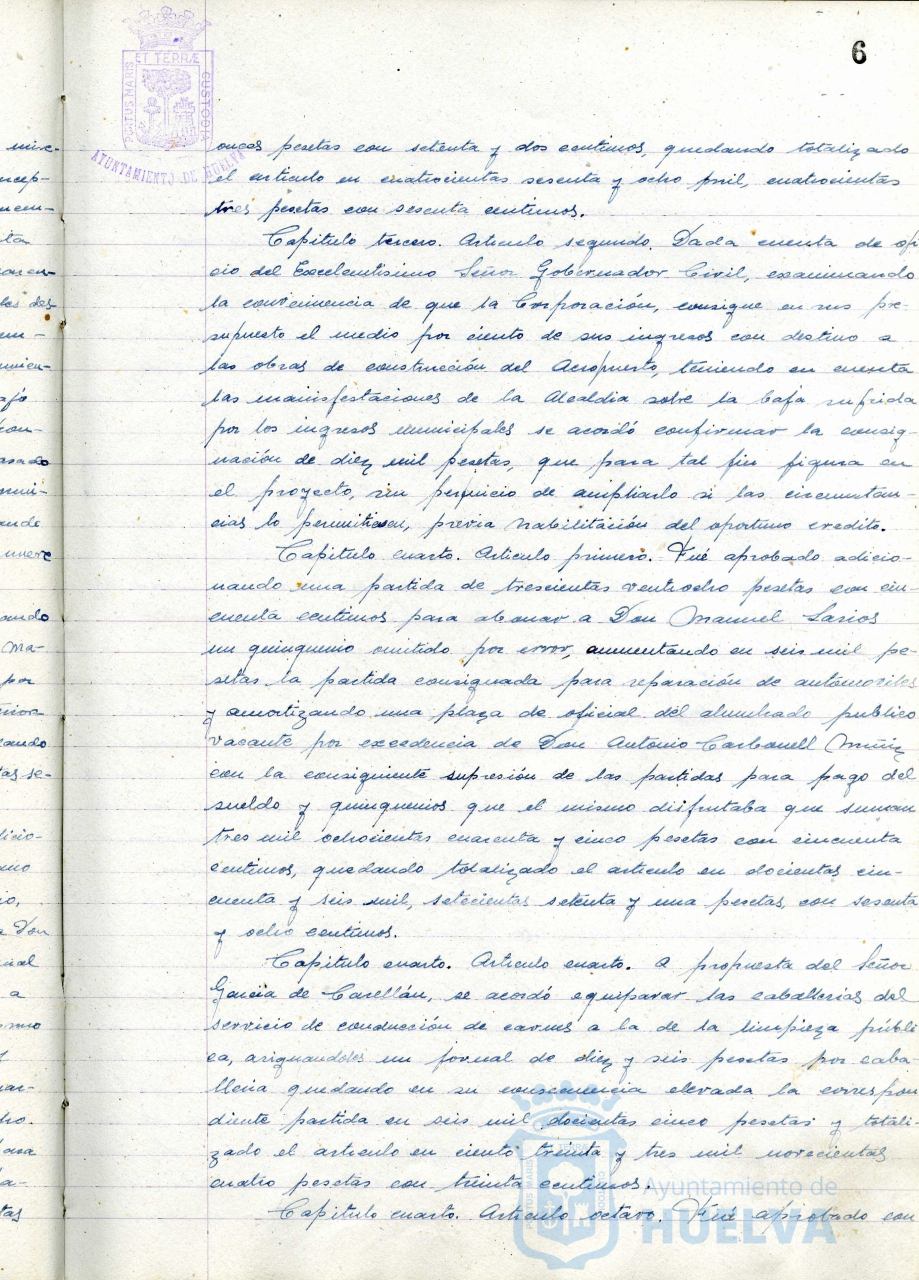 6
PORTUS MARIS
ET TERRÆ
CUSTODIA
AYUNTAMIENTO DE HUELVA
pesetas con setenta y dos centimos, quedando totalizado
el articulo en cuatrocientas sesenta y ocho mil, cuatrocientas
tres pesetas con sesenta centimos.
Capitulo tercero. Articulo segundo. Dada cuenta de ofi
cio del Excelentisimo Señor Gobernador Civil, examinando
la de que la Corporación, consigne en sus pre-
supuesto el medio por ciento de sus ingresos con destino a
las obras de construcción del Aeropuerto, teniendo en cuenta
las manifestaciones de la Alcaldia sobre la baja sufrida
por los ingresos municipales se acordó confirmar la consig-
nación de diez mil pesetas, que para tal fin figura en
el proyecto, sin perjuicio de ampliarlo si las circunstan-
cias lo permitiesen, previa habilitación del oportuno credito.
Capitulo cuarto. Articulo primero. Fué aprobado adicio-
nando una partida de trescientas ventiocho pesetas con cin-
cuenta centimos para abonar a Don Manuel Larios
un quinquenio omitido por error, aumentando en seis mil pe-
setas la partida consignada para reparación de automoviles
y amortizando una plaza de oficial del alumbrado publico
vacante por excedencia de Don Antonio Carbonell Muñiz
con la consiguiente supresión de las partidas para pago del
sueldo y quinquenios que el mismo disfrutaba que suman
tres mil ochocientas cuarenta y cinco pesetas con cincuenta
centimos, quedando totalizado el articulo en docientas cin-
cuenta y seis mil, setecientas setenta y una pesetas, con sesenta
y ocho centimos.
Capitulo cuarto. Articulo cuarto. A propuesta del Señor
Garcia de Carellán, se acordó equiparar las caballerias del
servicio de conducción de carnes a la de la limpieza públi
ca, asignandoles un jornal de diez y seis pesetas por caba-
lleria quedando en su consecuencia elevada la correspon
diente partida en seis mil docientas cinco pesetas y totali-
zado el articulo en ciento treinta y tres mil novecientas
cuatro pesetas con treinta centimos.
Capitulo cuarto. Articulo octavo. Fué aprobado con
Ayuntamiento de
HUELVA